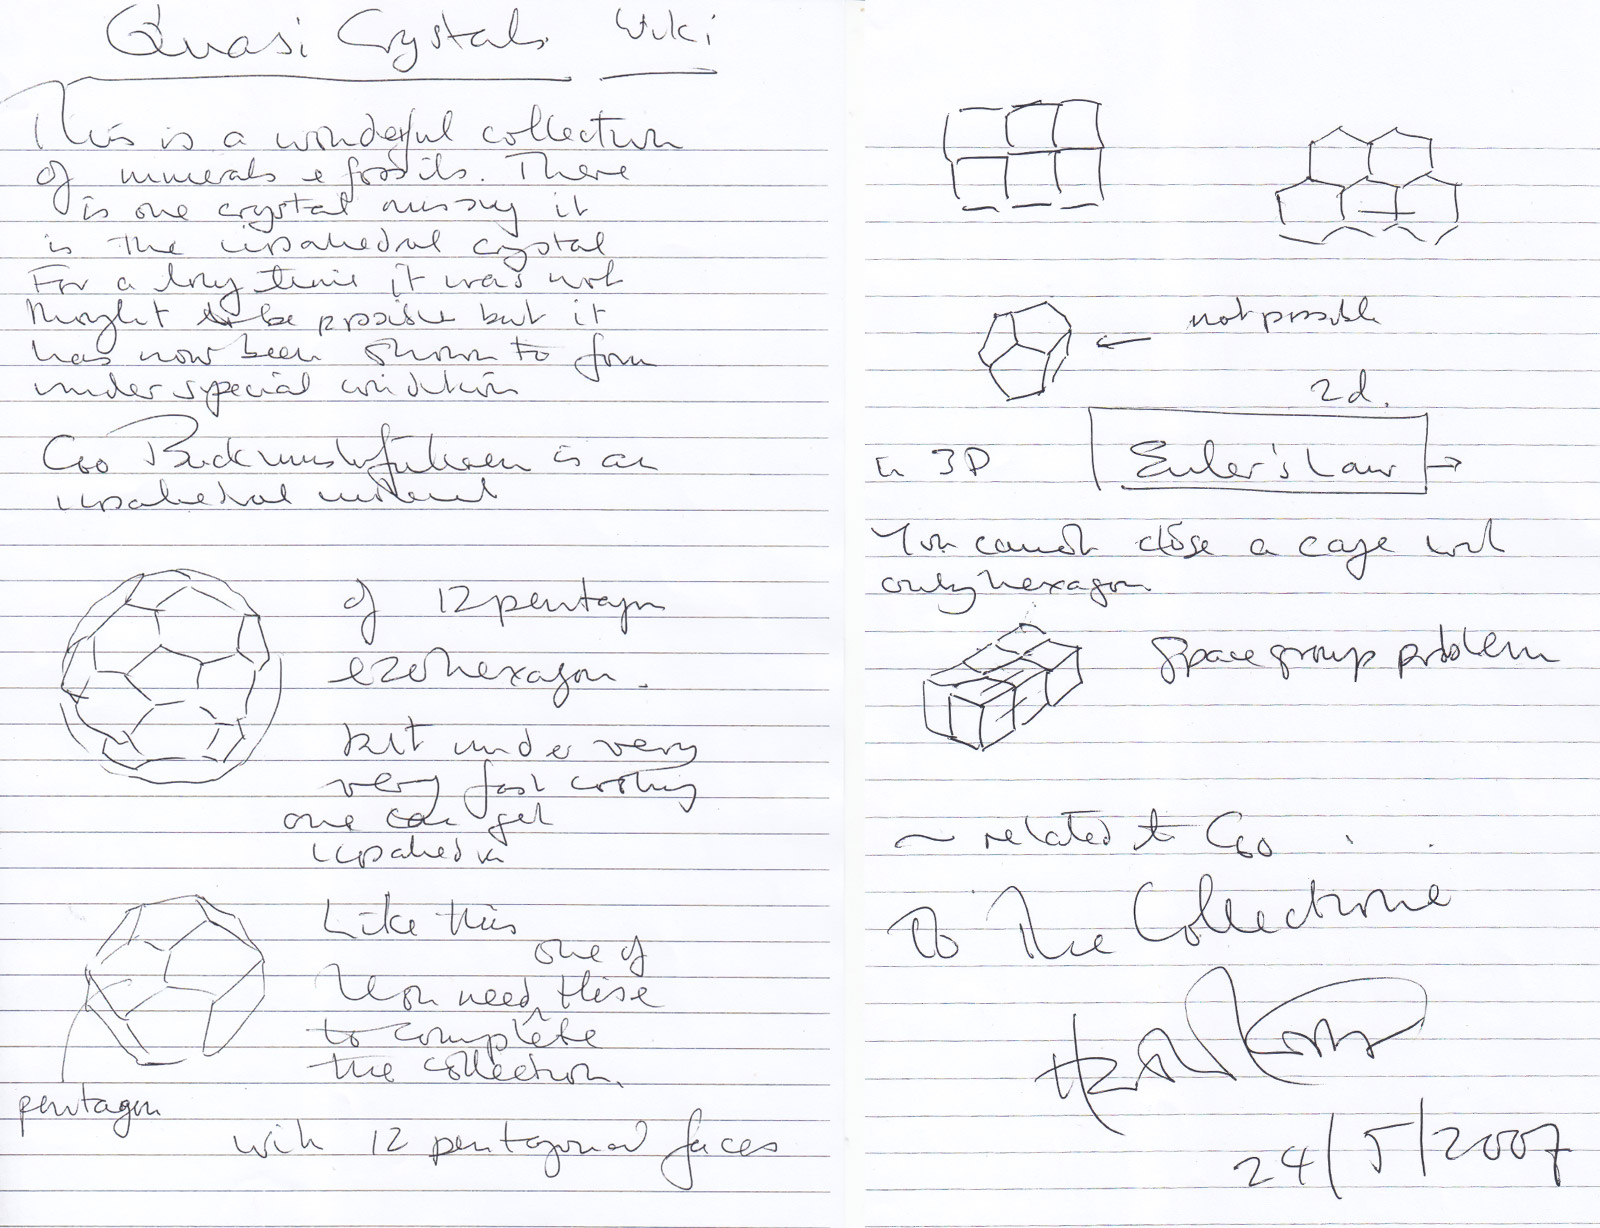 Quasi Crystals Wiki
This is a wonderful collection
of minerals & fossils. There
is one crystal missing it
is the icosahedral crystal
For a long time it was not
thought to be possible but it
has now been shown to form
under special conditions
C60 Buckminsterfullerene is an
icosahedral material
of 12 pentagon
& 20 hexagon.
but under very
very fast cooling
one can get
icosahedra
Like this
one of
You need ^ these
to complete
the collection.
pentagon
with 12 pentagonal faces
not possible
2d.
in 3D Euler's Law →
You cannot close a cage with
only hexagon
Space group problem
~ related to C60
To The Collectione
Harold Kroto
24/5/2007